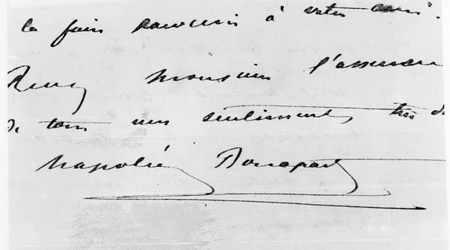 la faire parvenir à votre ami.
Monsieur l'assurance
de tous mes sentiments, très
Napoléon Bonaparte